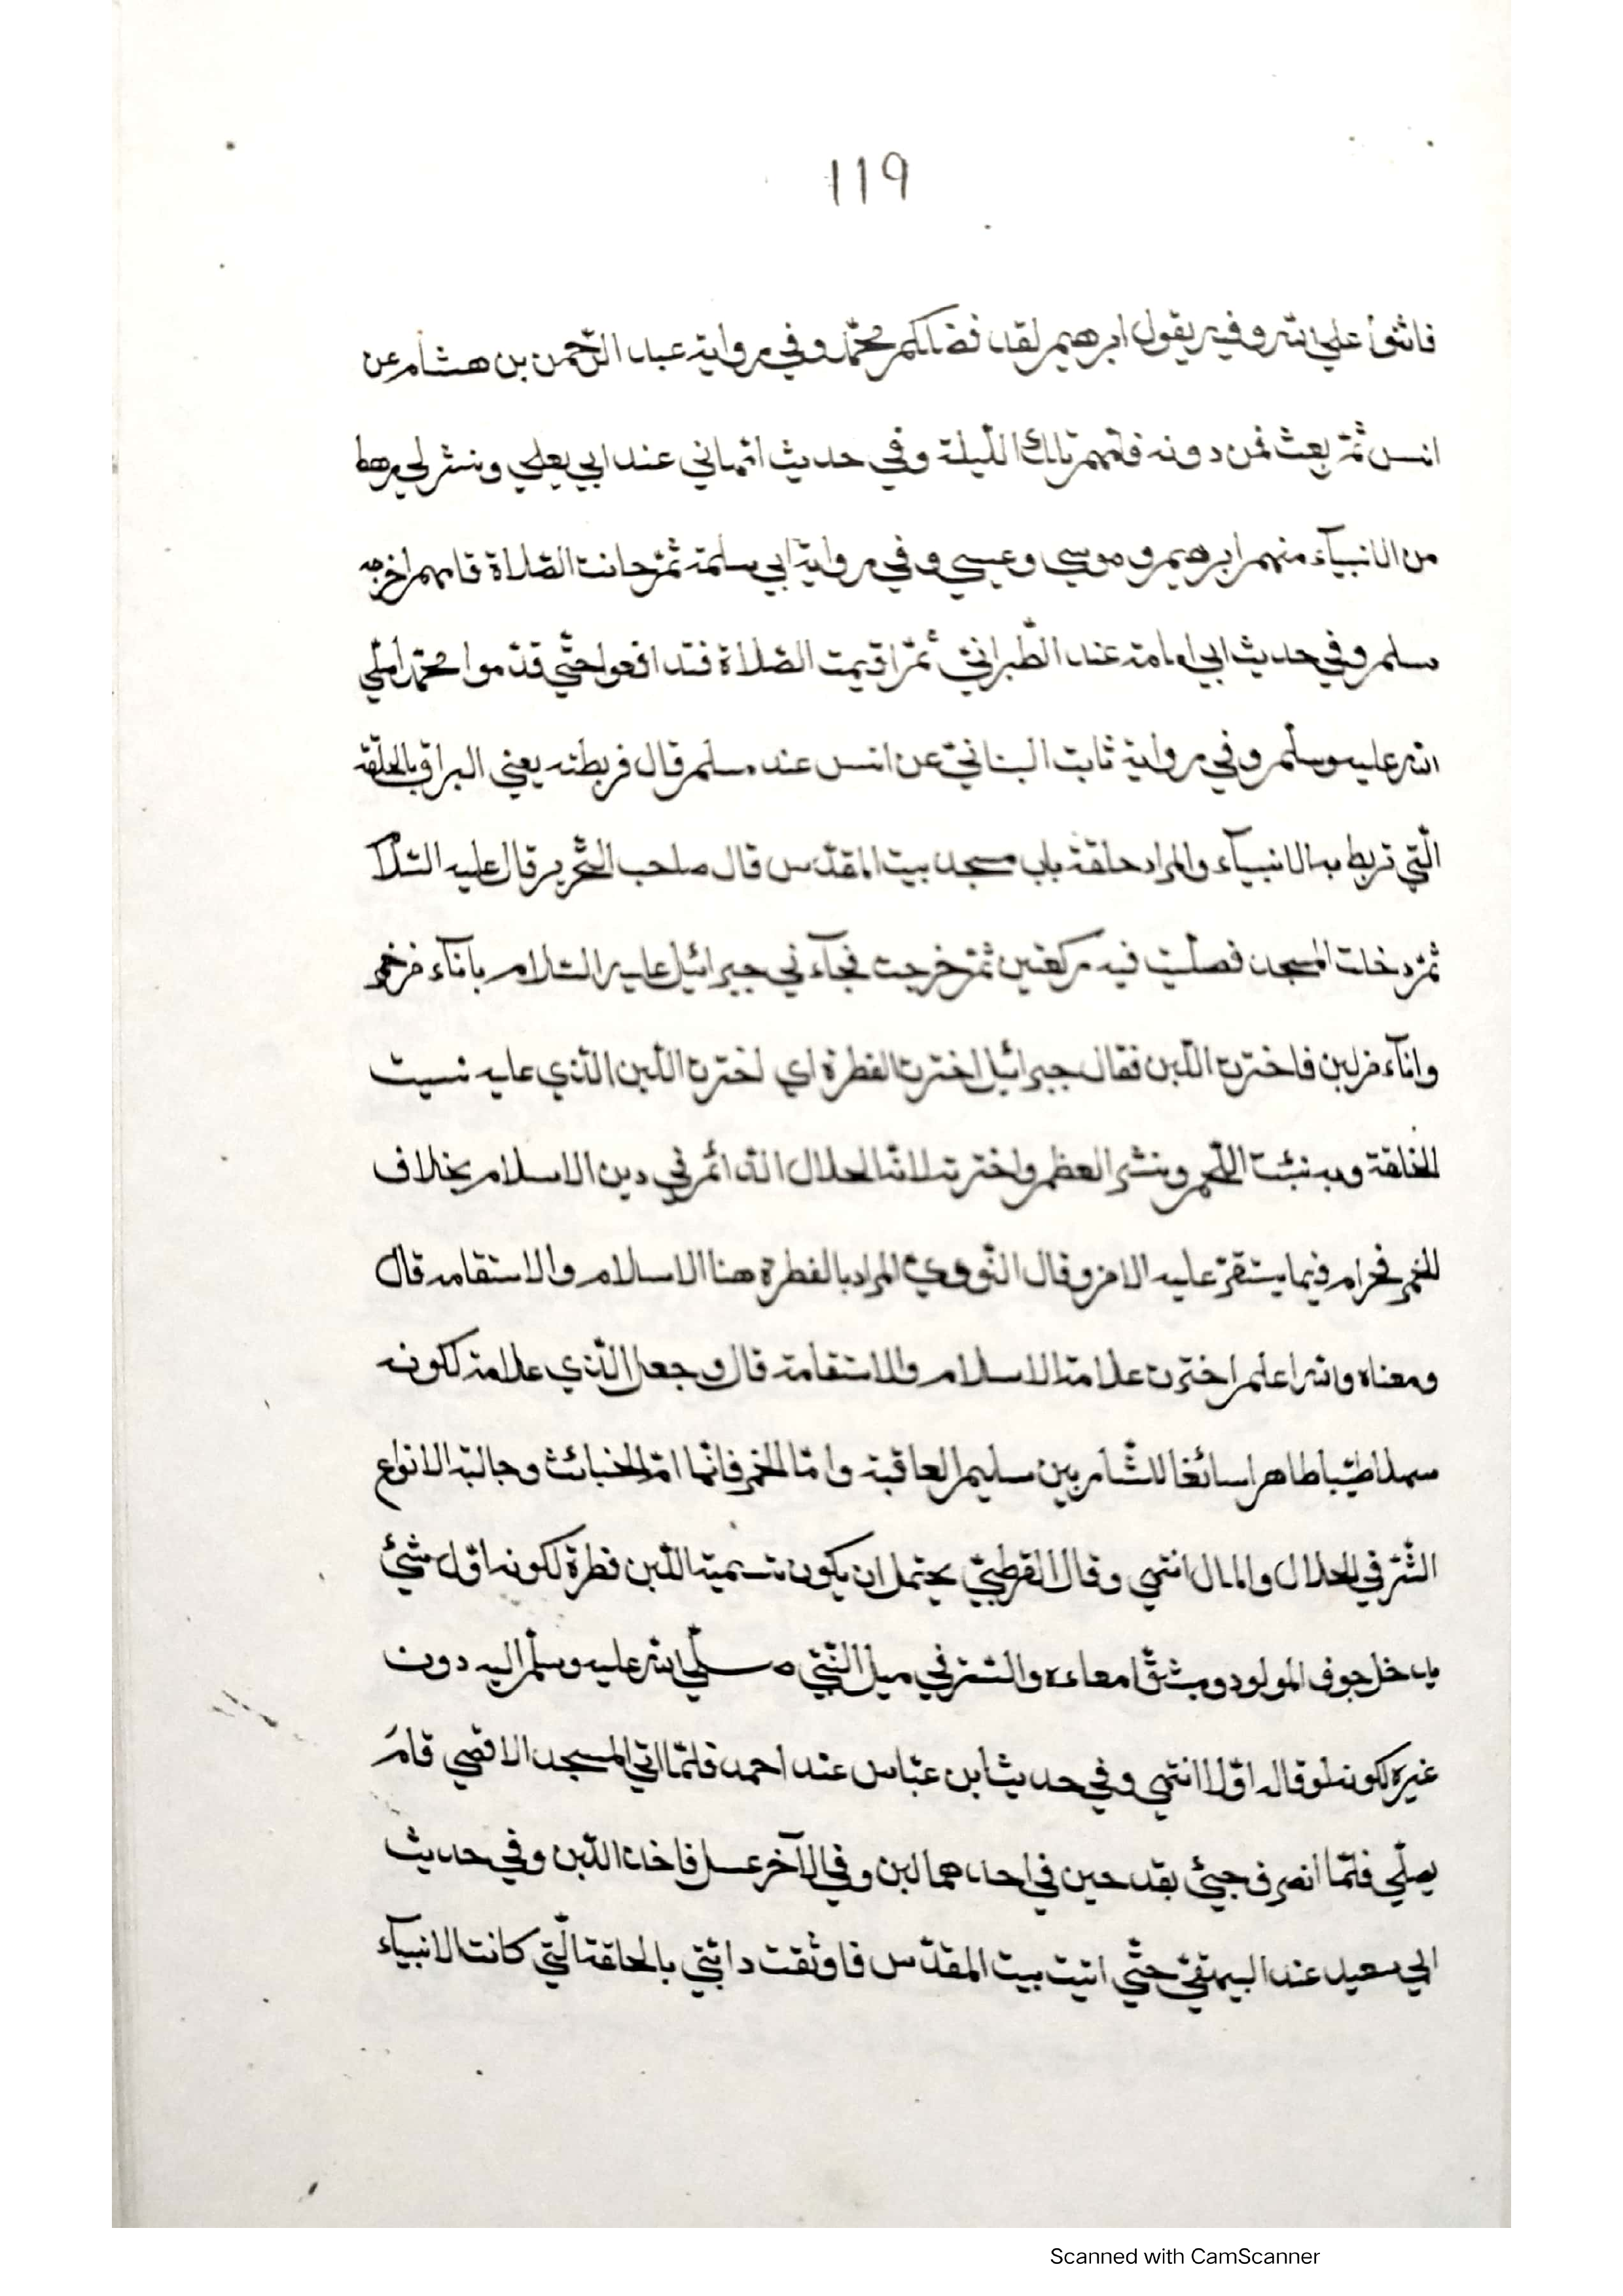 119
فاثنوا علي الله وفيه يقول ابرهيم لقد فضلكم محمّد وفي رواية عبد الرّحمن بن هشام عن
انس ثمّ بعث فمن دونه فامّهم تلك اللّيلة وفي حديث امّهاني عند ابي يعلي ونشر لي رهط
من الانبيآء منهم ابرهيم وموسي وعيسي وفي رواية ابي سلمة ثمّ حانت الصّلاة فامهم اخرجه
مسلم وفي حديث ابي امامة عند الطّبرانيّ ثمّ اقيمت الصّلاة فتدافعوا حتّي قدّموا محمّدا صلّي
الله عليه وسلّم وفي رواية ثابت البنانيّ عن انس عند مسلم قال فربطته يعني البراق بالحلقة
الّتي تربط به الانبيآء والمراد حلقة باب مسجد بيت المقدّس قال صاحب التّحرير قال عليه السّلا
ثمّ دخلت المسجد فصلّيت فيه ركعتين ثمّ خرجت فجآءني جبرائيل عليه السّلام باناء من خمر
واناء من لبن فاخترت اللّبن فقال جبرائيل اخترت الفطرة اي اخترت اللّبن الّذي عليه نسبت
الخلقة وبه نبّت اللّحم ونشر العظم واخترته لانّه الحلال الدّائم في دين الاسلام بخلاف
الخمر فحرام فيما يستقرّ عليه الامر وقال النّوويّ المراد بالفطرة هنا الاسلام والاستقامة قال
ومعناه والله اعلم اخترت علامة الاسلام والاستقامة قال وجعل الّذي علامة لكونه
سهلا طيّبا طاهرا سائغا للشّاربين سليم العاقبة وامّا الخمر فانّها امّ الخبائث وجالبة الانواع
الشّرّ في الحلال والمال انتهي وقال القرطبيّ يحتمل ان يكون تسمية اللّبن فطرة لكونه اوّل شيئ
يدخل جوف المولود ويشقّ امعاءه والسّرّ في ميل النّبيّ صلّي الله عليه وسلّم اليه دون
غيره لكونه اوّلا انتهي وفي حديث ابن عبّاس عند احمد فلمّا اتي المسجد الاقصي قام
يصلّي فلمّا انصرف جيئ بقدحين في احدهما لبن وفي الآخر عسل فاخذ اللّبن وفي حديث
ابي سعيد عند البيهقيّ حتّي اتيت بيت المقدّس فاوثقت دابّتي بالحلقة الّتي كانت الانبيآء
Scanned with CamScanner